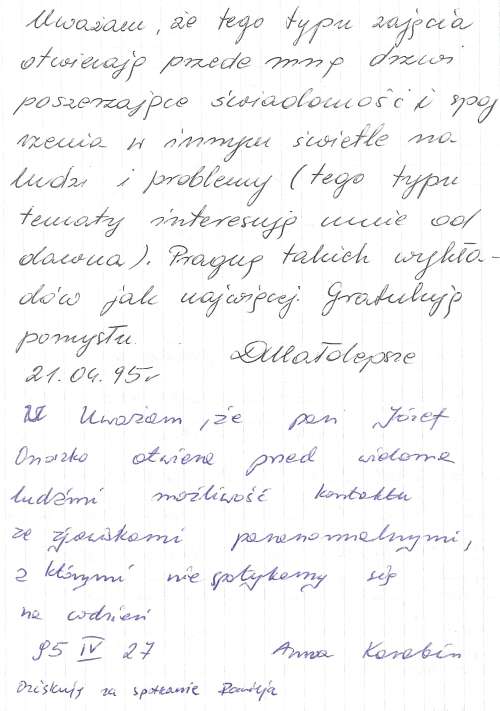 Uważam, że tego typu zajęcia
otwierają przede mną drzwi
poszerzające świadomość i spoj
rzenia w innym świetle na
ludzi i problemy (tego typu
tematy interesują mnie od
dawna). Pragnę takich wykła-
dów jak najwięcej. Gratuluję
pomysłu.
DMałolepsze
21.04.95r
Uważam, że pan Józef
Onoszko otwiera pred widoma
ludźmi możliwość kontaktu
ze zjawiskami paranormalnymi,
z którymi nie spotykamy się
na codzień
95 IV 27 Anna Karabin
za spotkanie